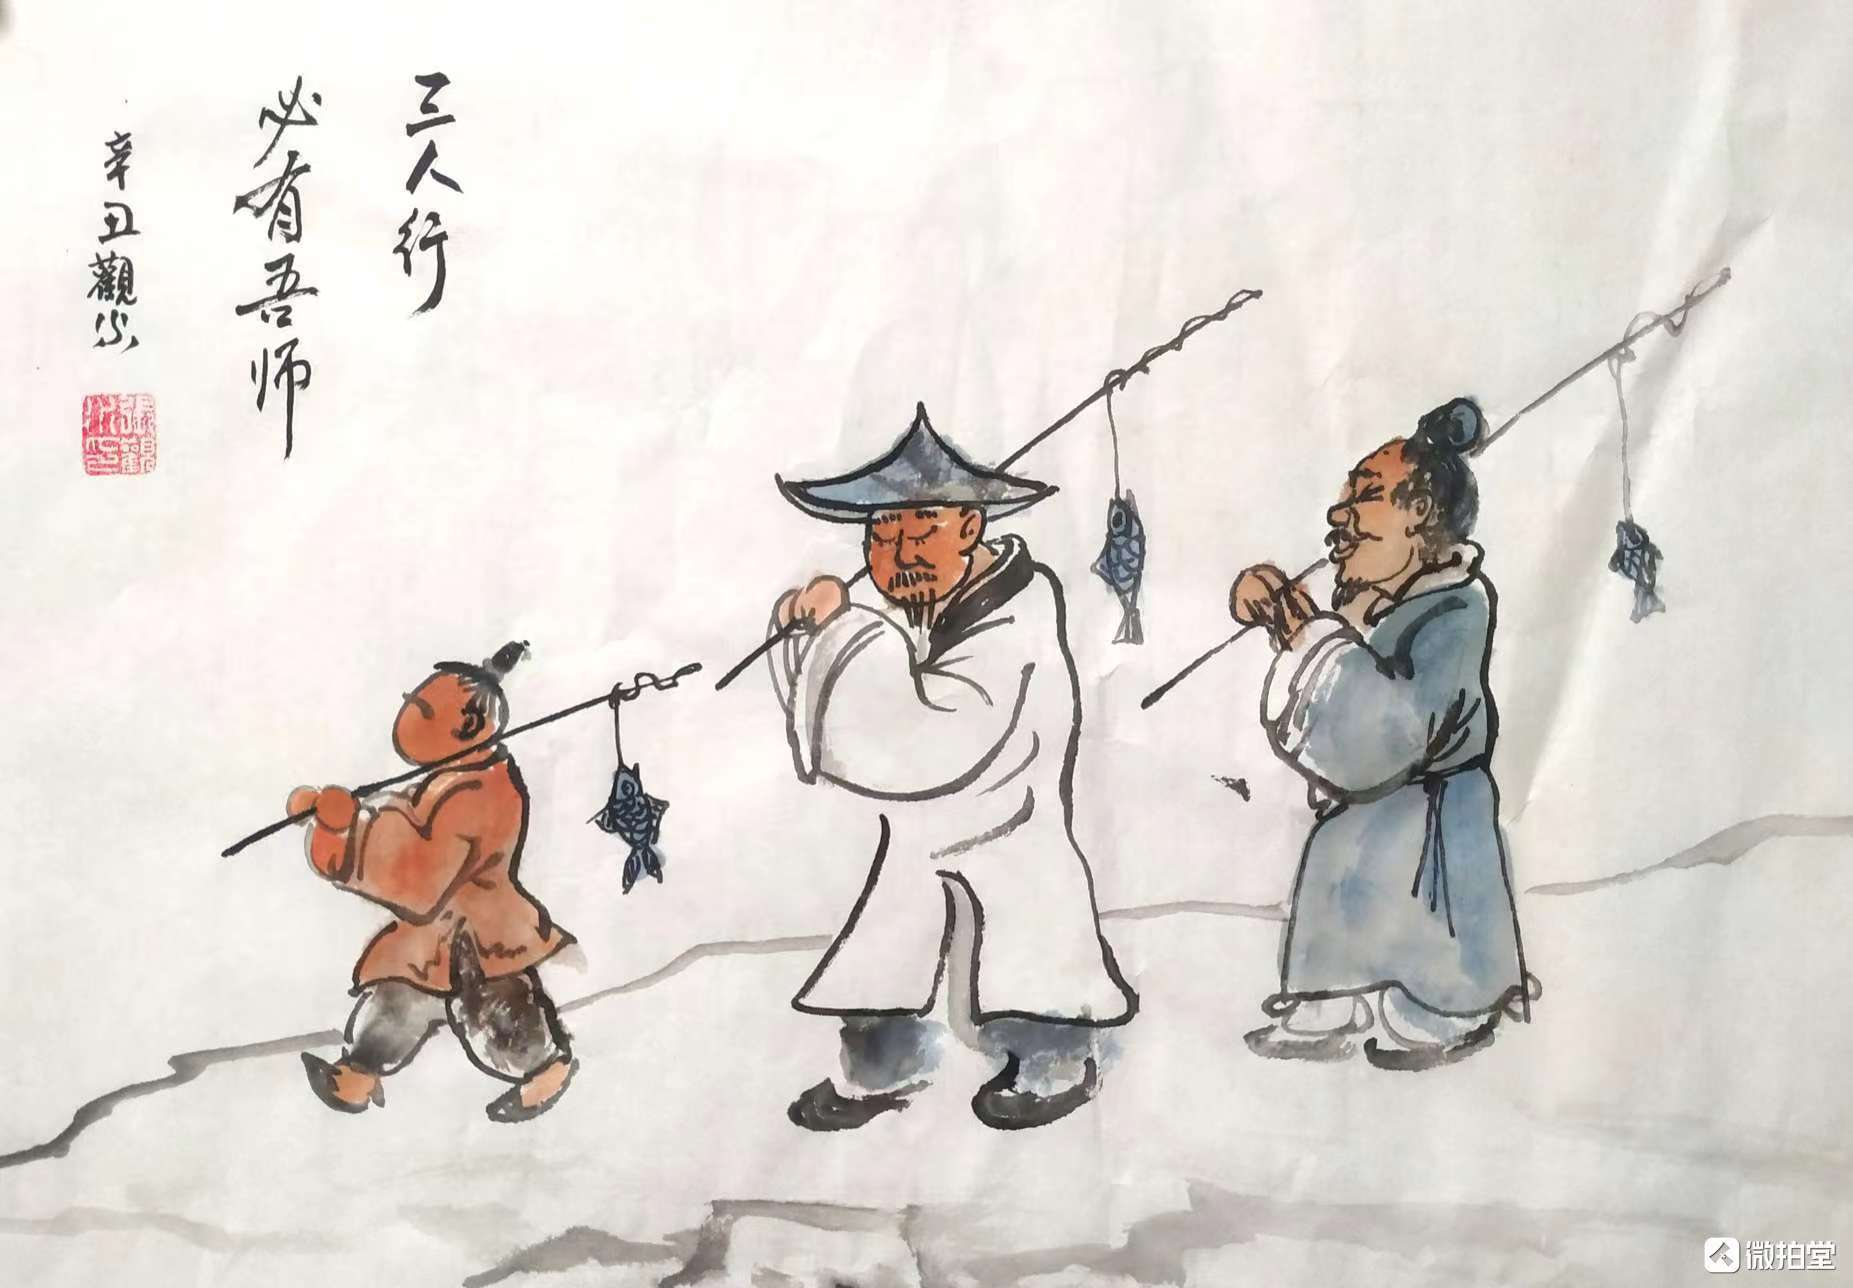 三人行
必有吾师
辛丑觀
微拍堂